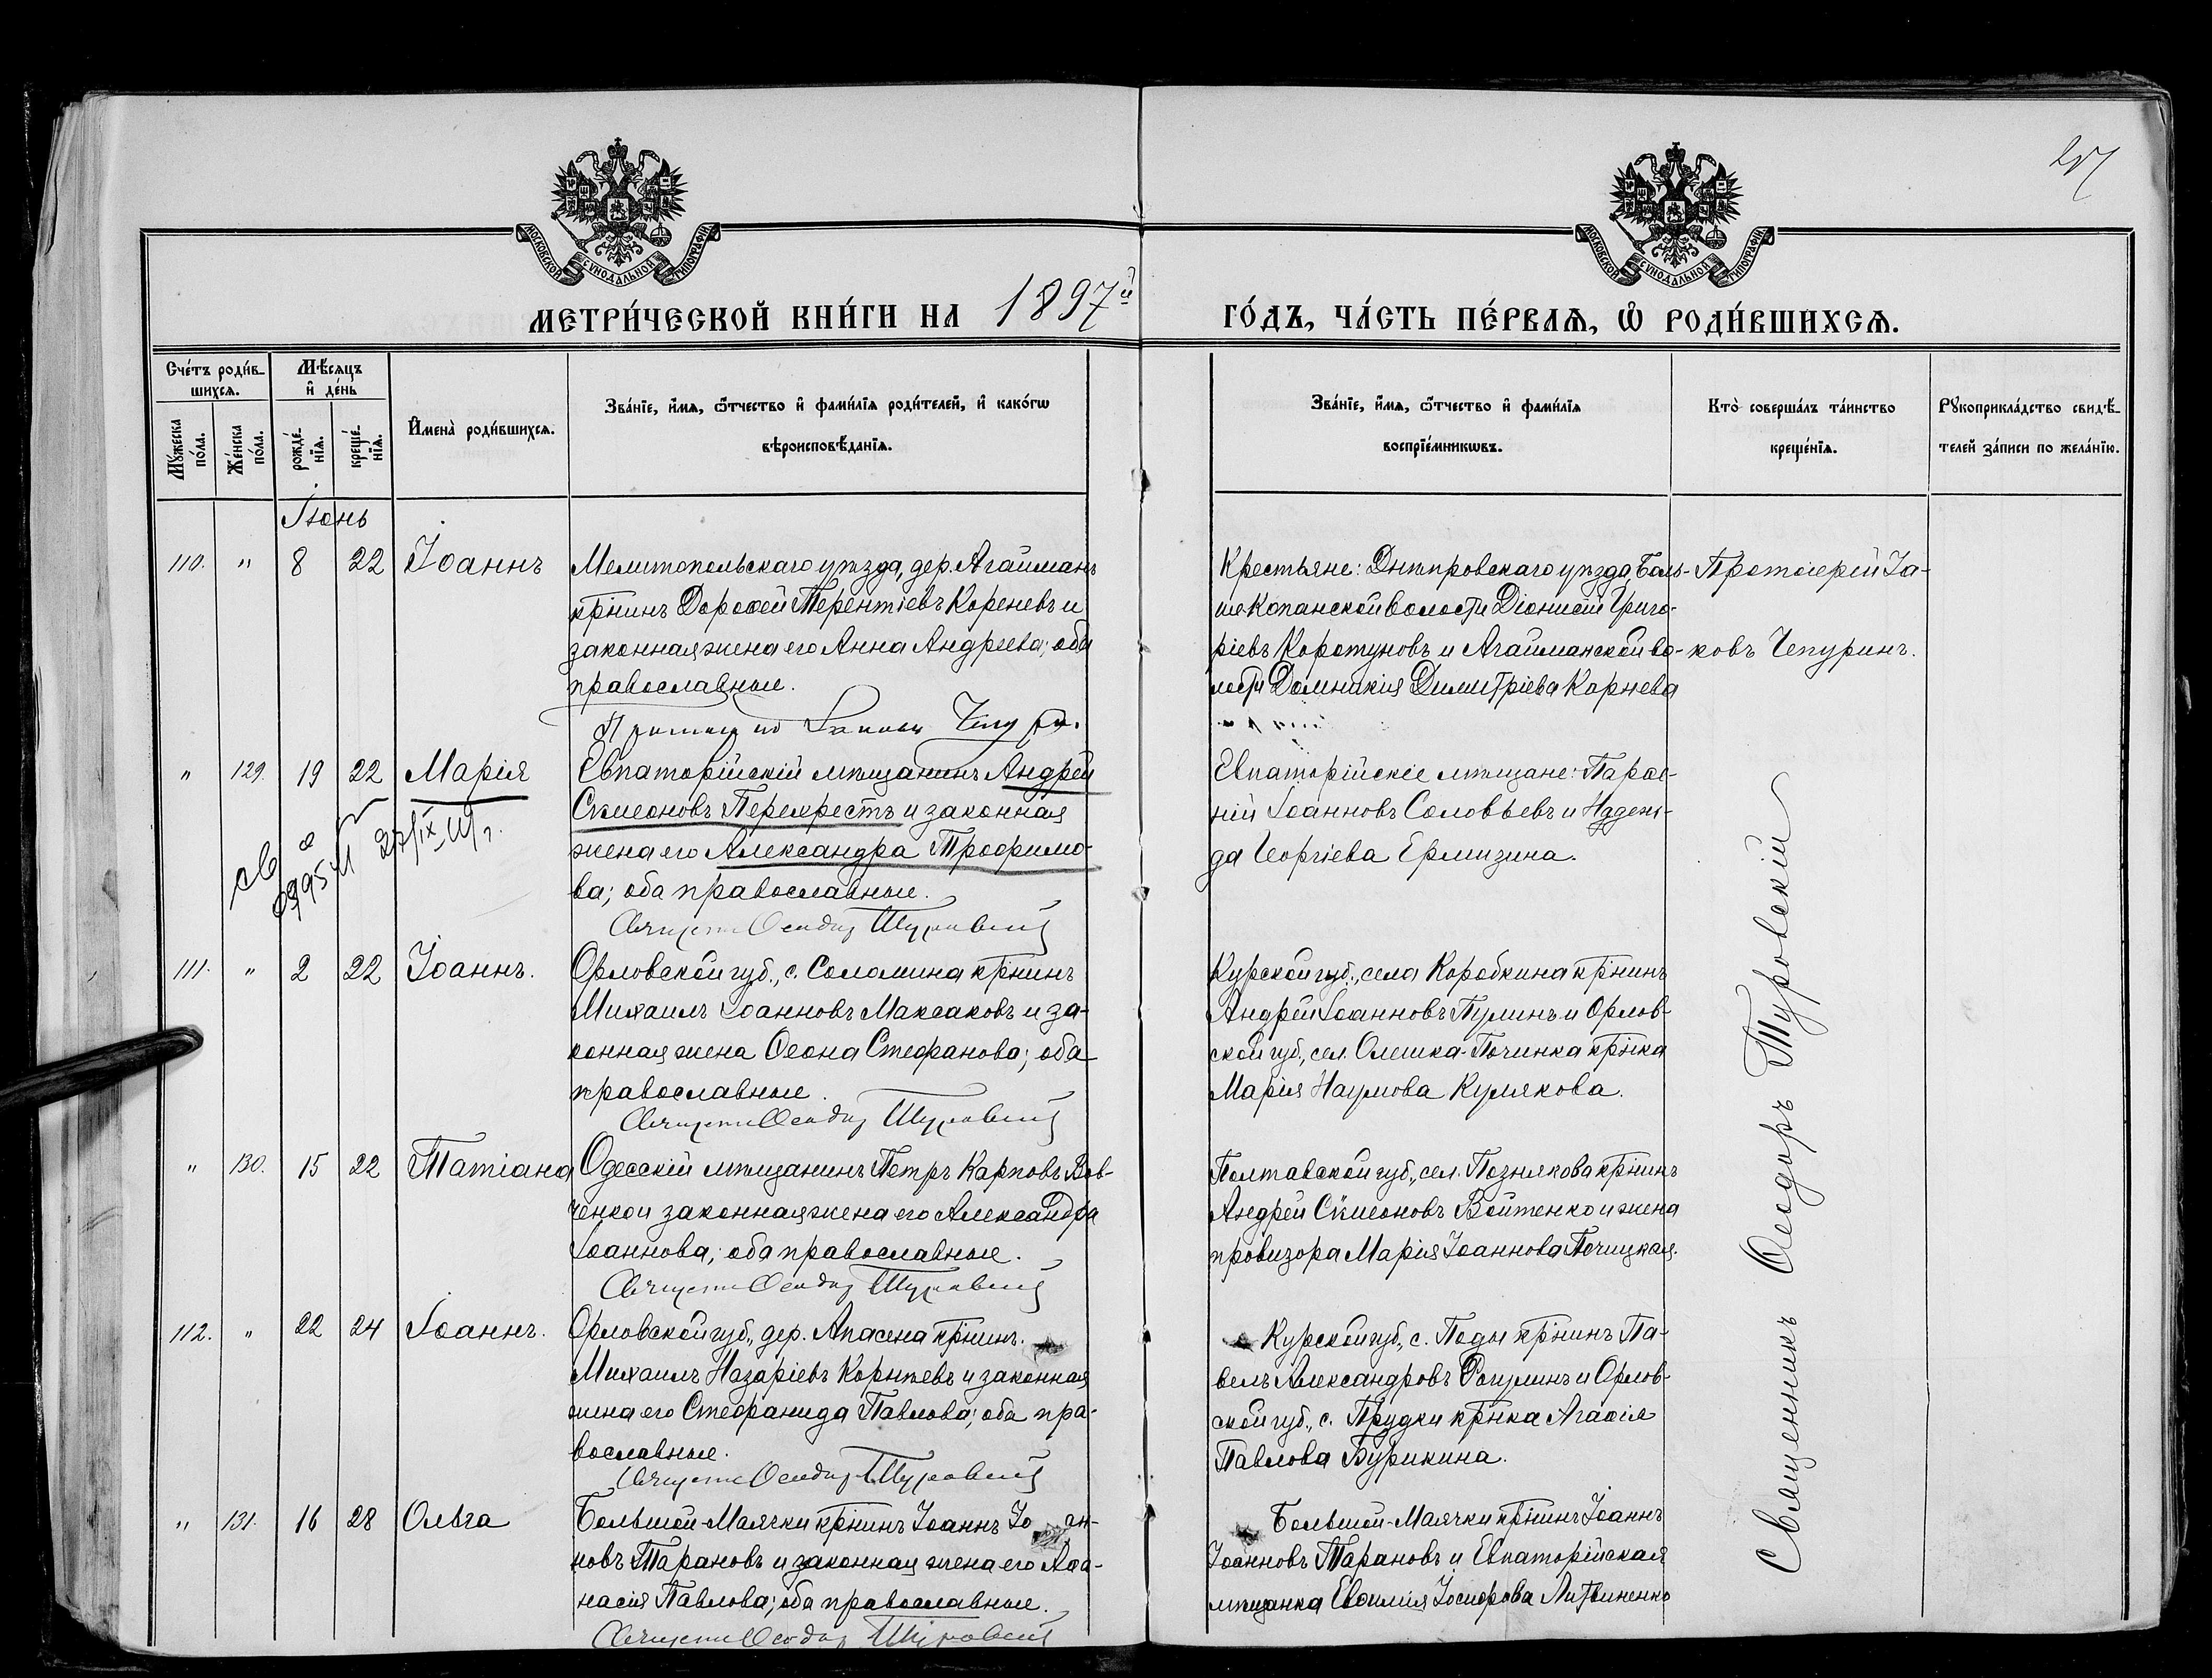 257
МОСКОВСКОЙ СѴНОДАЛЬНОЙ ТИПОГРАФІИ
МОСКОВСКОЙ СѴНОДАЛЬНОЙ ТИПОГРАФІИ
МЕТРИ́ЧЕСКОЙ КНИ́ГИ НА 1897й ГО́ДЪ, ЧА́СТЬ ПЕ́РВАѦ, Ѡ РОДИ́ВШИХСѦ.
Сче́тъ роди́в-
шихсѧ.
Мꙋ́жеска по́ла.
Же́нска по́ла.
Мѣ́сѧцъ
и҆ де́нь
рожде́-нїѧ.
креще́-нїѧ.
И҆мена̀ роди́вшихсѧ.
Зва́нїе, и҆́мѧ, ѻ҆́тчество и҆ фами́лїѧ роди́телей, и҆ како́гѡ
вѣроисповѣ́данїѧ.
Зва́нїе, и҆́мѧ, ѻ҆́тчество и҆ фами́лїѧ
воспрїе́мникѡвъ.
Кто̀ соверша́лъ та́инство
креще́нїѧ.
Рꙋкоприкла́дство свидѣ́-
телей за́писи по жела́нїю.
Іюнь
110. " 8 22 Іоаннъ
Мелитопольскаго уѣзда, дер. Агайманъ
кр҃нинъ Дорофей Терентіевъ Кореневъ и
законная жена его Анна Андреева; оба
православные.
Крестьяне: Днѣпровскаго уѣзда, Боль-
шекопанской волости Діонисій Григо-
ріевъ Коротуновъ и Агайманской во-
лости Домникія Димитріева Корнева
Протоіерей Іа-
ковъ Чепуринъ.
" 129. 19 22 Марія
Евпаторійскій мѣщанинъ Андрей
Сѵмеоновъ Перекрестъ и законная
жена его Александра Трофимо-
ва; оба православные.
Священ Ѳеодоръ Туровскій
Евпаторійскіе мѣщане: Парѳе-
ній Іоанновъ Соловьевъ и Надеж-
да Георгіева Ермизина.
Священникъ Ѳеодоръ Туровскій
111. " 2 22 Іоаннъ.
Орловской губ., с. Соломина кр҃нинъ
Михаилъ Іоанновъ Максаковъ и за-
конная жена Ѳеона Стефанова; оба
православные.
Священ Ѳеодоръ Туровскій
Курской губ., села Коробкина кр҃нинъ
Андрей Іоанновъ Пулинъ и Орлов-
ской губ., сел. Олешка-Починка кр҃нка
Марія Наумова Кулякова.
" 130. 15 22 Татіана
Одесскій мѣщанинъ Петръ Карповъ Вов-
ченко и законная жена его Александра
Іоаннова; оба православные.
Священ Ѳеодоръ Туровскій
Полтавской губ., сел. Познякова кр҃нинъ
Андрей Сѵмеоновъ Войтенко и жена
провизора Марія Іоаннова Печицкая.
112. " 22 24 Іоаннъ.
Орловской губ., дер. Апасена кр҃нинъ.
Михаилъ Назаріевъ Корнѣевъ и законная
жена его Стефанида Павлова; оба пра-
вославные.
Священ Ѳеодоръ Туровскій
Курской губ., с. Поды кр҃нинъ Па-
велъ Александровъ Рогулинъ и Орлов-
ской губ., с. Прудки кр҃нка Агаѳія
Павлова Бурикина.
" 131. 16 28 Ольга
Большой-Маячки кр҃нинъ Іоаннъ Іоан-
новъ Тарановъ и законная жена его Аѳа-
насія Павлова; оба православные.
Священ Ѳеодоръ Туровскій
Большой-Маячки кр҃нинъ Іоаннъ
Іоанновъ Тарановъ и Евпаторійская
мѣщанка Евѳимія Іосифова Литвиненко